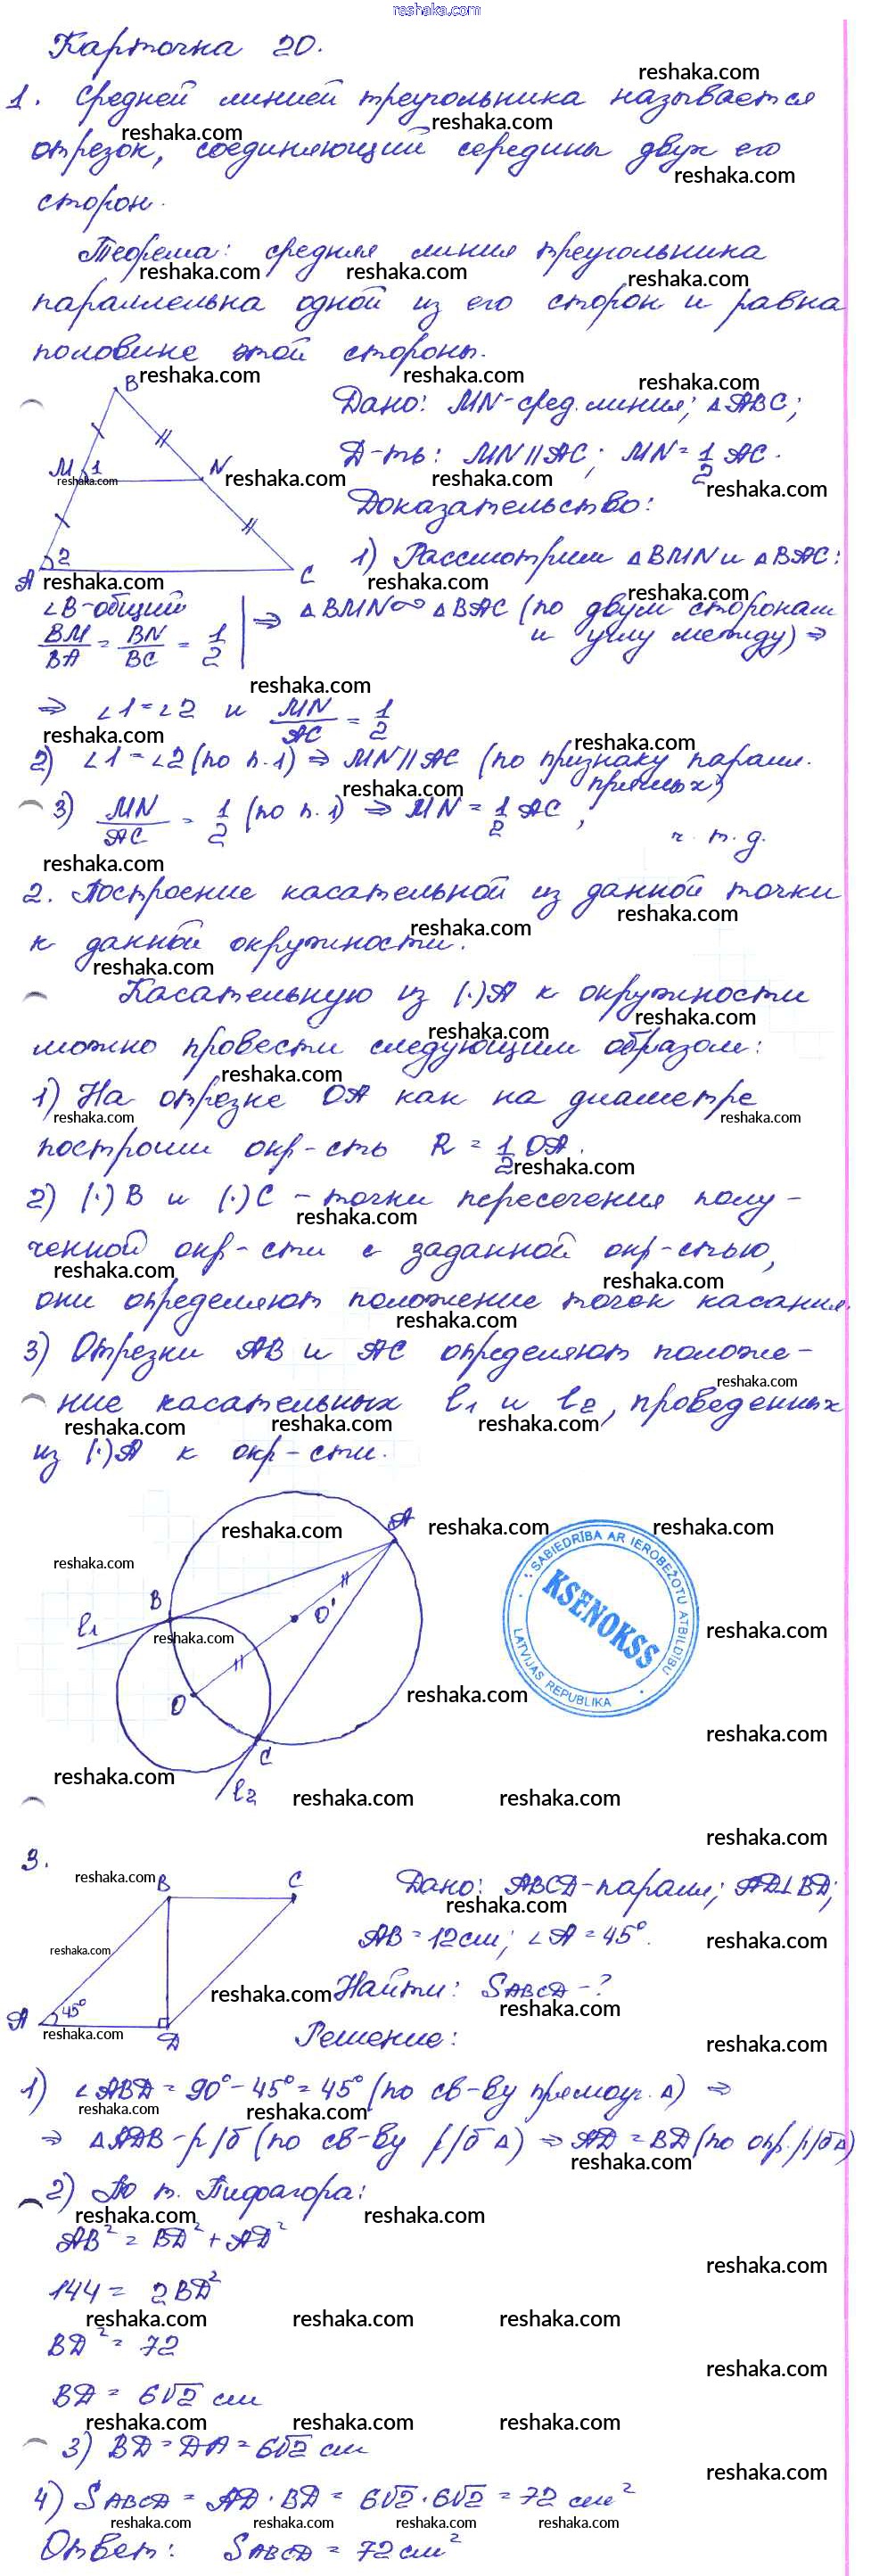 reshaka.com
Карточка 20.
1. Средней линией треугольника называется
отрезок, соединяющий середины двух его
сторон.
Теорема: средняя линия треугольника
параллельна одной из его сторон и равна
половине этой стороны.
B
M 1 N
A 2 C
Дано: MN-сред. линия; △ABC;
Д-ть: MN || AC; MN = 1/2 AC.
Доказательство:
1) Рассмотрим △BMN и △BAC:
∠B-общий
BM/BA = BN/BC = 1/2 | ⇒ △BMN ∞ △BAC (по двум сторонам
и углу между) ⇒
⇒ ∠1 = ∠2 и MN/AC = 1/2
2) ∠1 = ∠2 (по п.1) ⇒ MN || AC (по признаку паралл.
прямых)
3) MN/AC = 1/2 (по п.1) ⇒ MN = 1/2 AC,
ч. т. д.
2. Построение касательной из данной точки
к данной окружности.
Касательную из (·)A к окружности
можно провести следующим образом:
1) На отрезке OA как на диаметре
построим окр-сть R = 1/2 OA.
2) (·) B и (·) C - точки пересечения полу-
ченной окр-сти с заданной окр-стью,
они определяют положение точек касания.
3) Отрезки AB и AC определяют положе-
ние касательных l1 и l2, проведенных
из (·)A к окр-сти.
A
B
l1
O'
O
C
l2
SABIEDRĪBA AR IEROBEŽOTU ATBILDĪBU
KSENOKSS
LATVIJAS REPUBLIKA
3.
B C
A 45° D
Дано: ABCD-паралл; AD⊥BD;
AB = 12 см; ∠A = 45°.
Найти: SABCD - ?
Решение:
1) ∠ABD = 90° - 45° = 45° (по св-ву прямоуг. △) ⇒
⇒ △ADB - р/б (по св-ву р/б △) ⇒ AD = BD (по опр. р/б△)
2) По т. Пифагора:
AB² = BD² + AD²
144 = 2BD²
BD² = 72
BD = 6√2 см
3) BD = DA = 6√2 см
4) SABCD = AD · BD = 6√2 · 6√2 = 72 см²
Ответ: SABCD = 72 см²